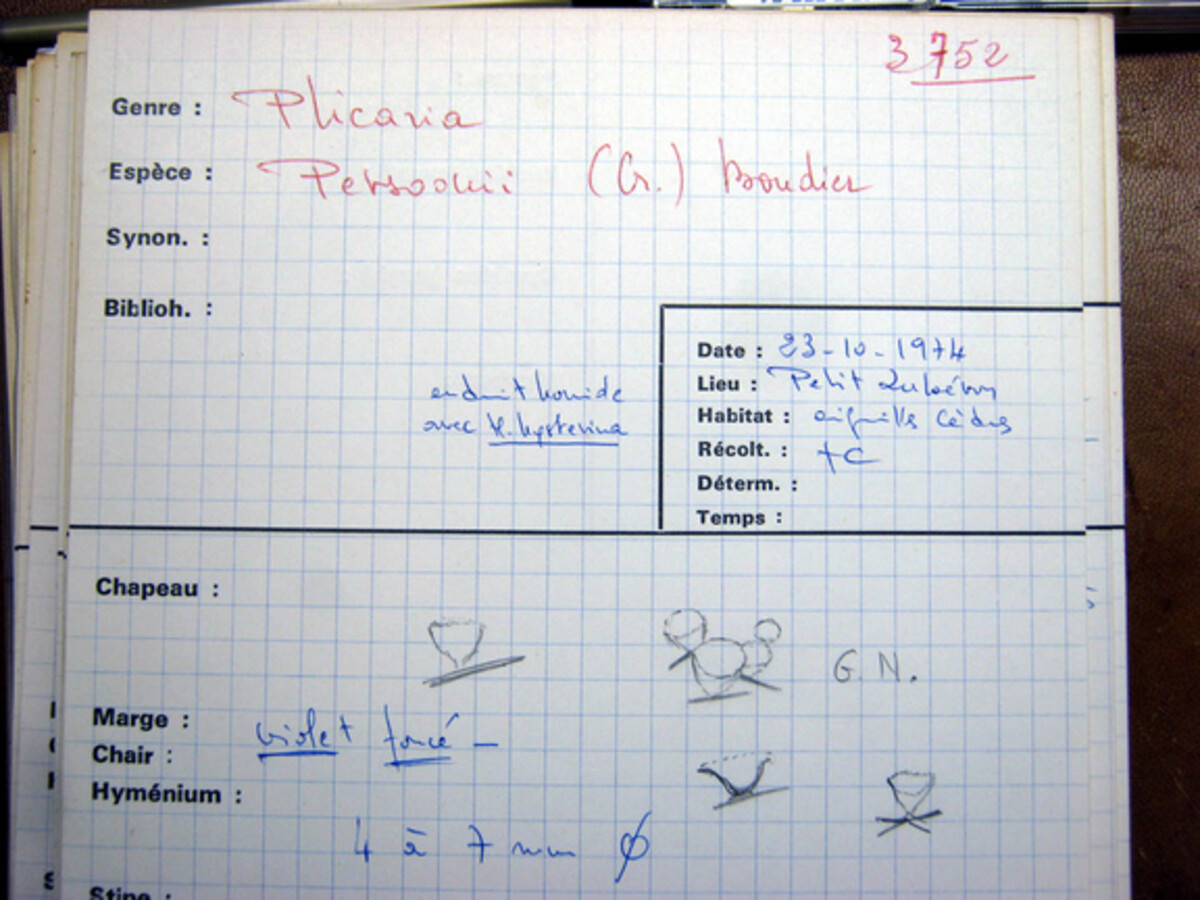 3752
Genre : Plicaria
Espèce : Persoonii (Cr.) Boudier
Synon. :
Biblioh. :
Date : 23-10-1974
Lieu : Petit Lubéron
endroit humide
Habitat : aiguilles Cèdres
avec H. hysterina
Récolt. : +C
Déterm. :
Temps :
Chapeau :
G.N.
Marge :
violet foncé -
Chair :
Hyménium :
4 à 7 mm Ø
Stipe :